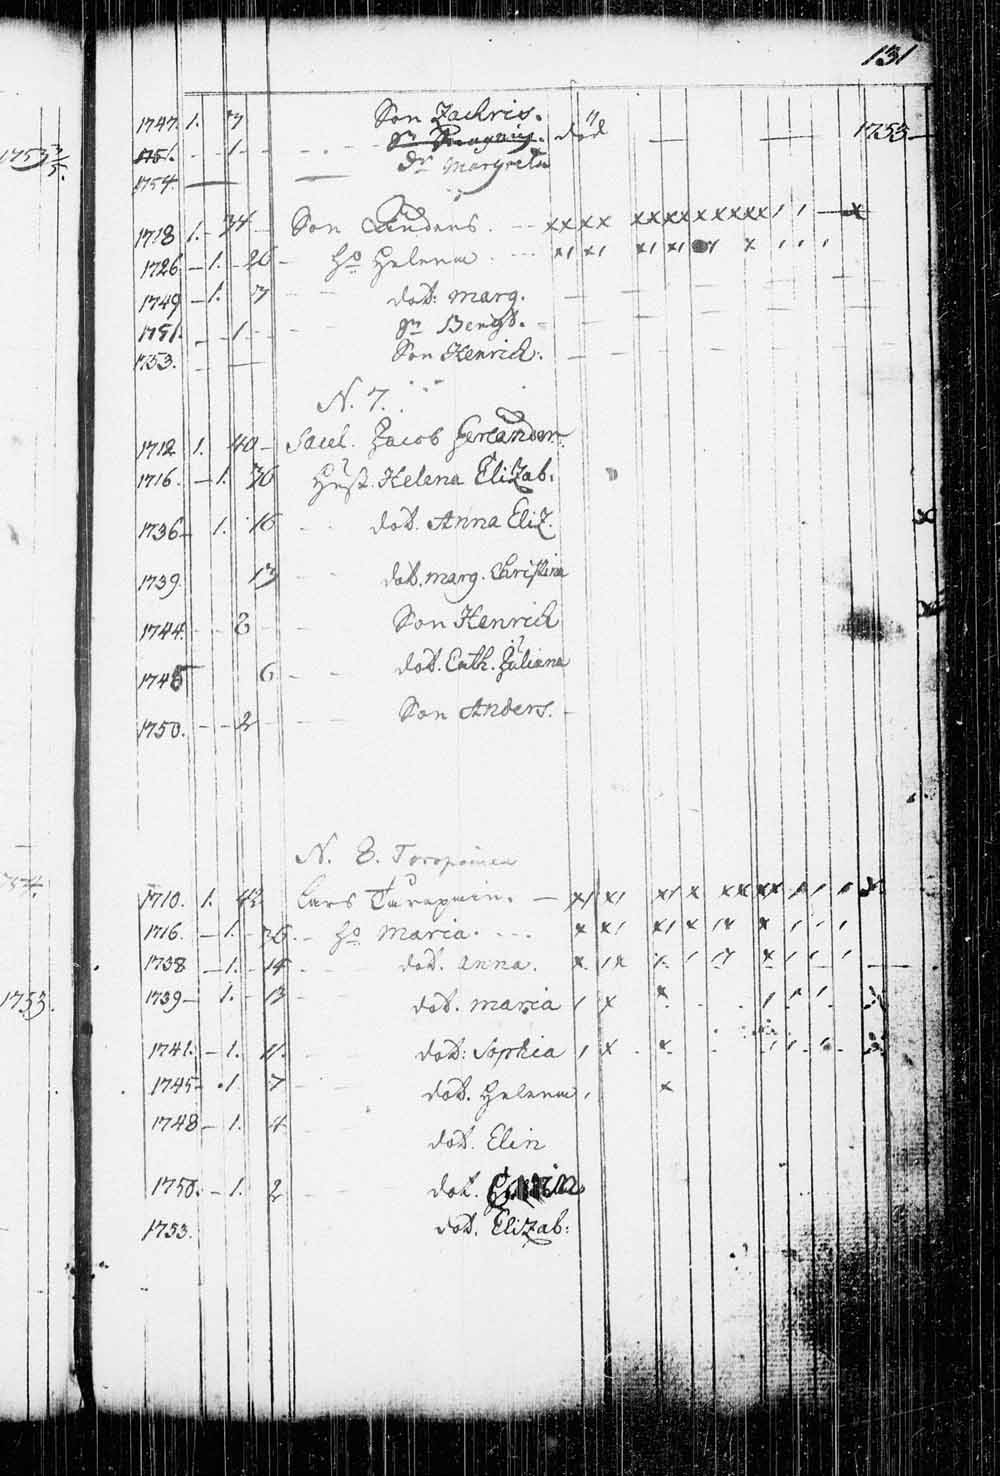 131
1747. 1. 3 Son Zachris.
1751. 1. död 1753
dr Margreta
1754.
1753 3/5.
1718 1. 34 Son Anders. xx xx xx xx xx xx x 1 1 x
1726. 1. 26 Ho Helena x1 x1 x1 x1 x 1 1 1
1749 1. 3 dot: Marg.
1751. 1 Sn Bengt.
1753. Son Henrich.
N. 7.
1712 1. 40 Jacob Gerlander.
1716. 1. 36 Hust. Helena Elizab.
1736 1. 16 dot. Anna Eliz. x
1739. 13 dot. Marg. Christina
1744. 8 Son Henrich
1746 6 dot. Cath. Juliana
1750. 2 Son Anders.
N. 8. Toropainen
1710. 1. 42 Lars Turapain. x1 x1 x1 x xx xx 1 1
1716. 1. 36 Ho Maria. x x1 x1 x x 1 1 1
1738 1. 14 dot. Anna. x 1x 1 1 x 1 1 1
1753.
1739 1. 13 dot. Maria 1 x x 1 1 1
1741. 1. 11. dot: Sophia 1 x x 1 1
1745 1. 7 dot. Helena x
1748 1. 4 dot. Elin
1750. 1. 2 dot.
1753. dot. Elizab: